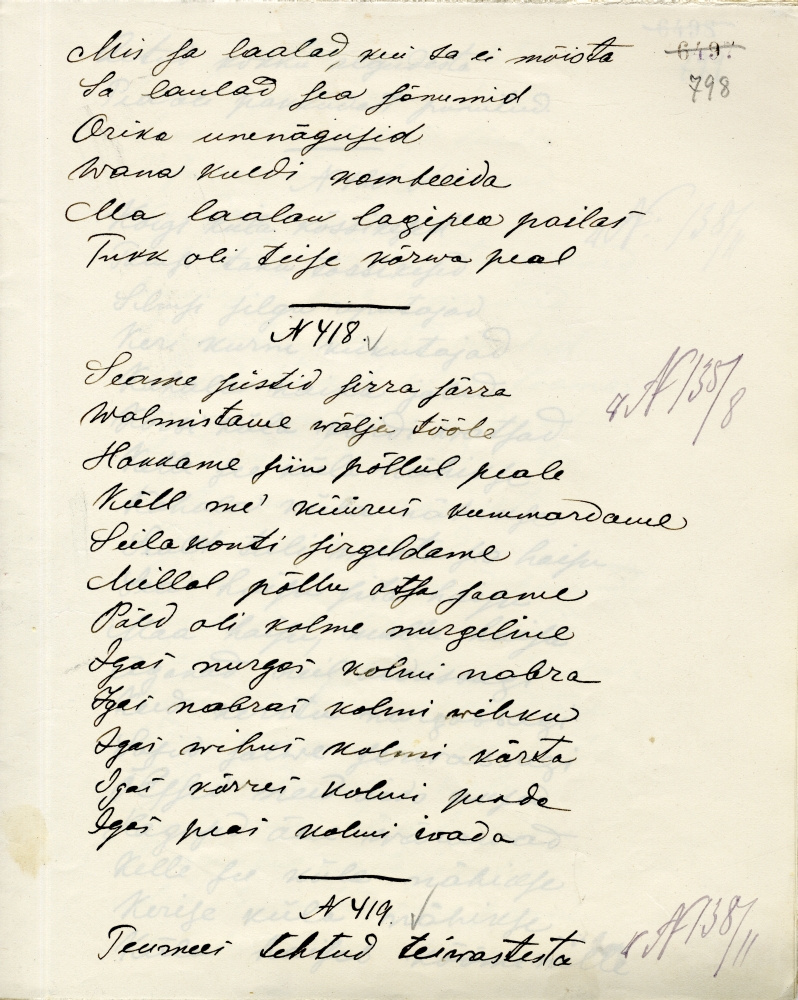 Mis sa laalad, kui sa ei mõista
6497
798
Sa laulad sea sõnumid
Orika unenägusid
Wana kuldi kombeeida
Ma laalan lagipea pailas
Tukk oli teise kõrwa peal
N 418.
N 138/8
Seame süstid sirra särra
Walmistame wälja tööle
Hakkame siin põllul peale
Küll me'küürus kummardame
Seilakonti sirgeldame
Millal põllu otsa saame
Põld oli kolme nurgeline
Igas nurgas kolmi nabra
Igas nabras kolmi wihku
Igas wihus kolmi kõrta
Igas kõrres kolmi peada
Igas peas kolmi iwada
N 419.
N 138/11
Teumees tehtud teiwastesta